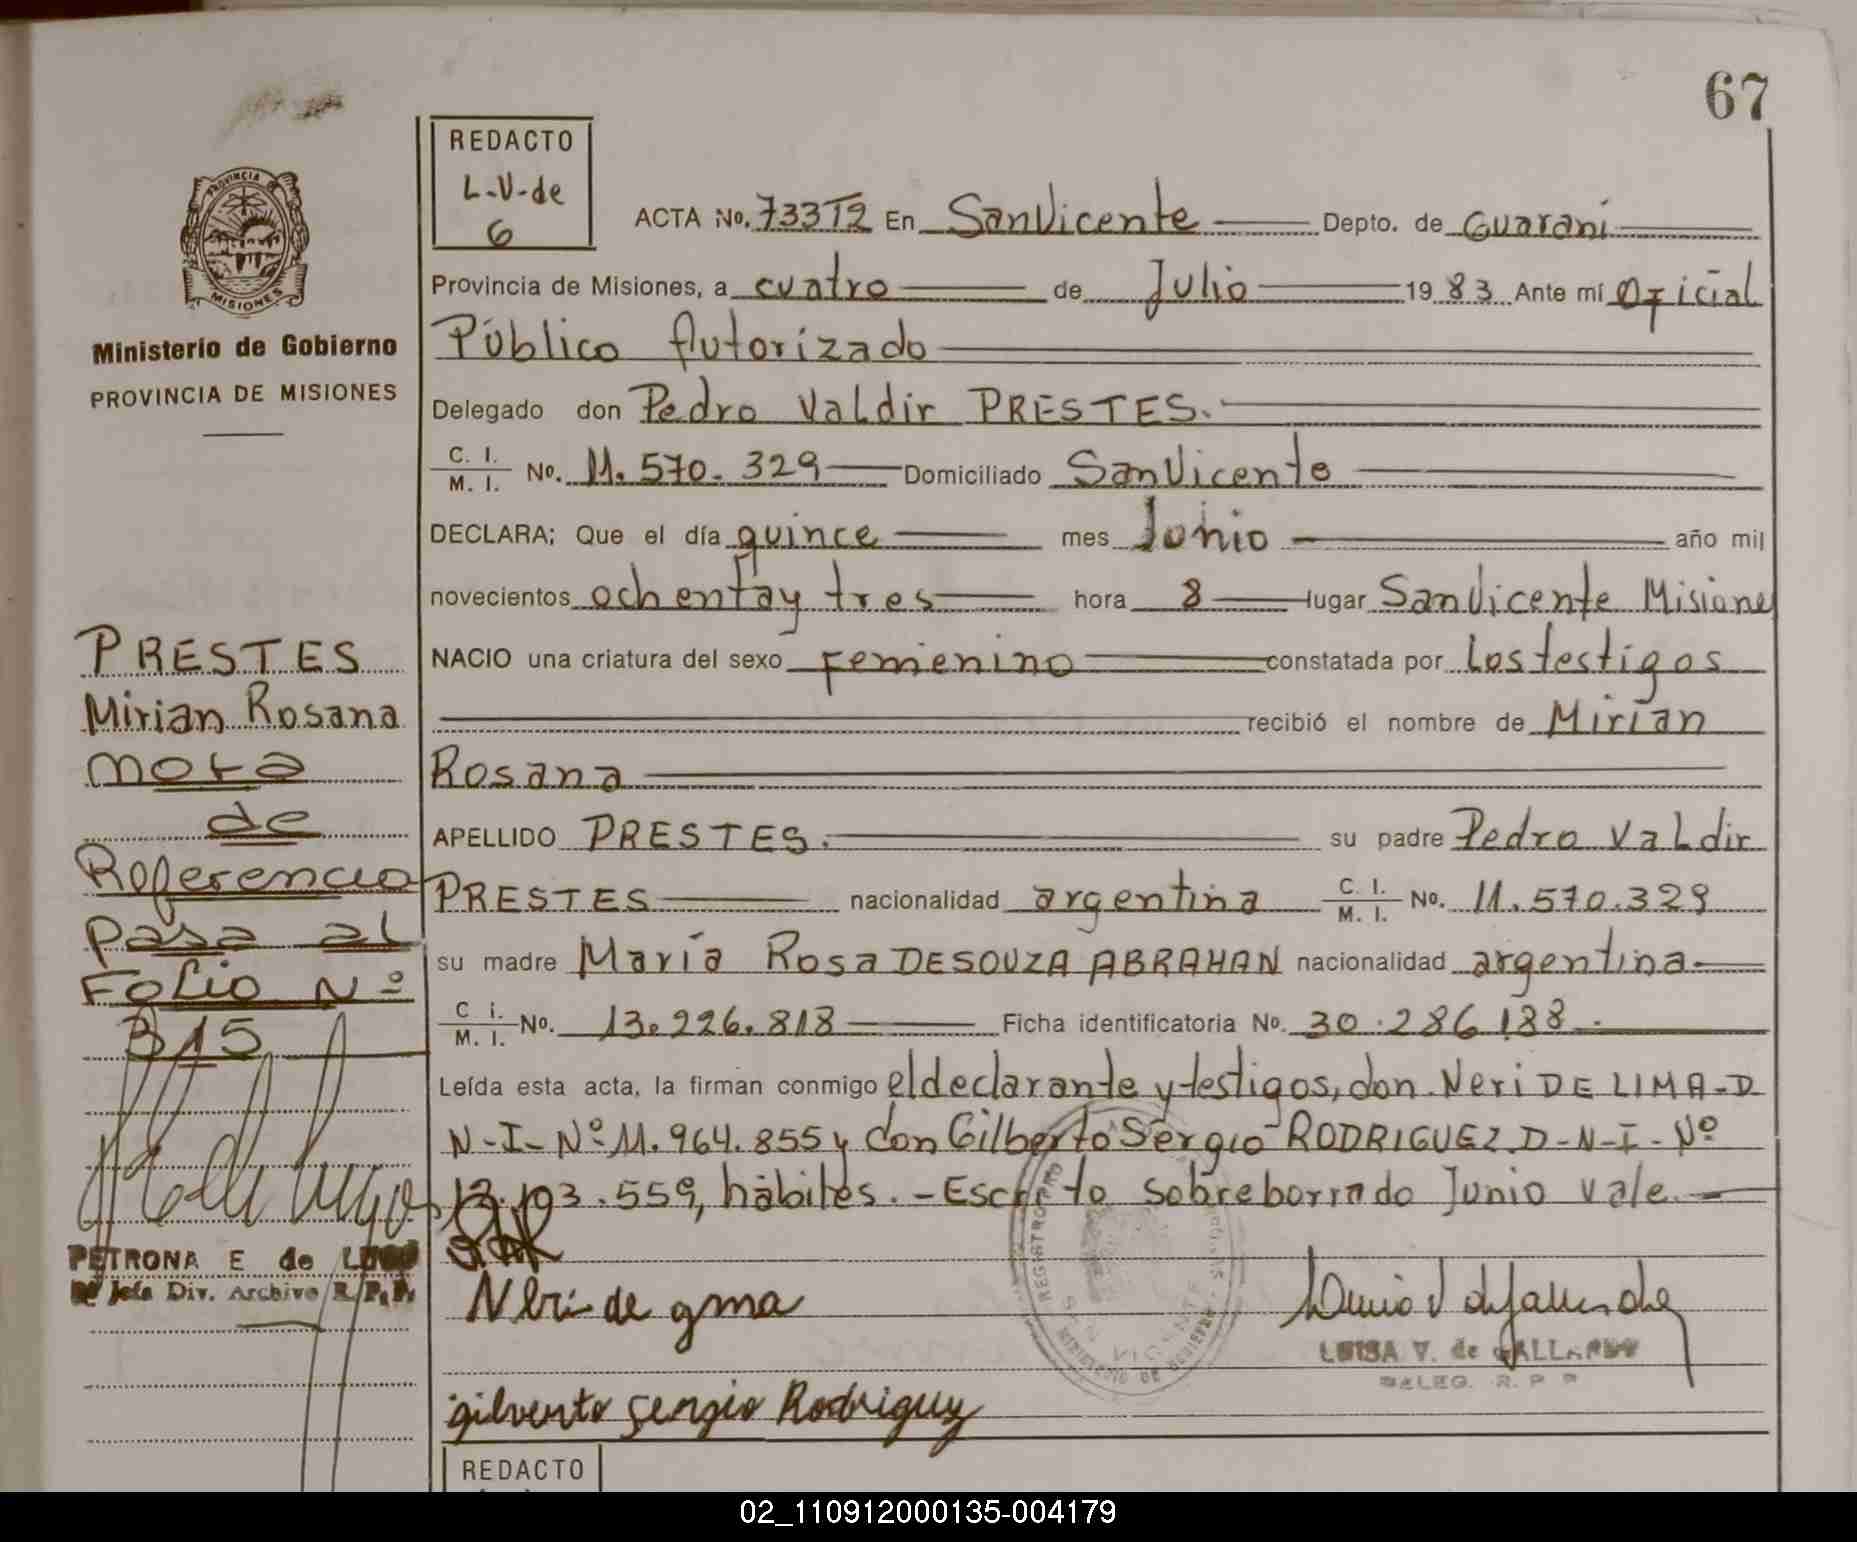 67
REDACTO
L-V-de
6
PROVINCIA DE
MISIONES
Ministerio de Gobierno
PROVINCIA DE MISIONES
ACTA No. 733T2 En San Vicente Depto. de Guaraní
Provincia de Misiones, a cuatro de Julio 19 83 Ante mí Oficial
Público Autorizado
Delegado don Pedro Valdir PRESTES.
C. I. / M. I. No. 11.570.329 Domiciliado San Vicente
DECLARA; Que el día quince mes Junio año mil
novecientos ochenta y tres hora 8 lugar San Vicente Misiones
NACIO una criatura del sexo Femenino constatada por Los testigos
recibió el nombre de Mirian
Rosana
APELLIDO PRESTES. su padre Pedro Valdir
PRESTES nacionalidad argentina C. I. / M. I. No. 11.570.329
su madre María Rosa DE SOUZA ABRAHAN nacionalidad argentina
C. i. / M. I. No. 13.226.818 Ficha identificatoria No. 30.286.188.
Leída esta acta, la firman conmigo el declarante y testigos, don Neri DE LIMA-D
N-I-Nº 11.964.855 y don Gilberto Sergio RODRIGUEZ D-N-I-Nº
103.559, hábiles.-Escrito sobreborrado Junio vale.
PRESTES
Mirian Rosana
nota
de
Referencia
pasa al
Folio Nº
315
PETRONA E de LUGO
Jefa Div. Archivo R.P.P.
Neri de
gilverto sergio Rodriguez
LUISA V. de GALLARDO
DELEG. R. P. P.
REDACTO
02_110912000135-004179